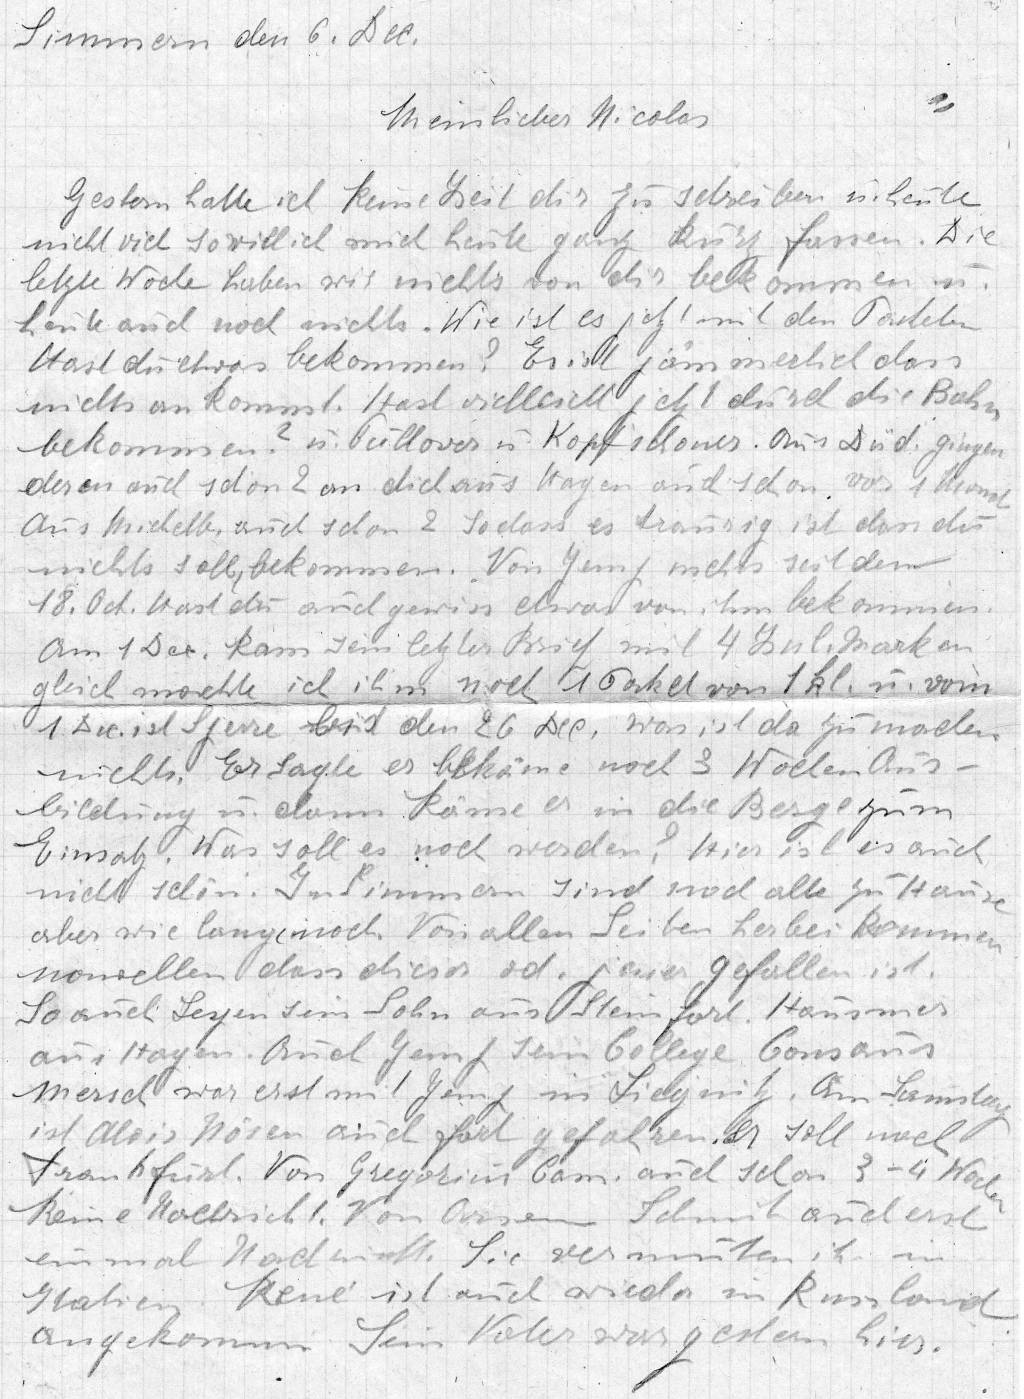 Simmern den 6. Dec.
Mein lieber Nicolas
Gestern hatte ich keine Zeit dir zu schreiben u. heute
nicht viel so will ich mich heute ganz kurz fassen. Die
letzte Woche haben wir nichts von dir bekommen u.
heute auch noch nichts. Wie ist es jetzt mit den Paketen
Hast du etwas bekommen? Es ist jämmerlich dass
nichts ankommt. Hast vielleicht jetzt durch die Bahn
bekommen? u. Pullover u. Kopfschoner. Aus Düd. gingen
deren auch schon 2 an dich aus Hagen auch schon vor 1 Monat
Aus Michelb. auch schon 2 sodass es traurig ist dass du
nichts soll, bekommen. Von Jemp nichts seit dem
18. Oct. Hast du auch gewiss etwas von ihm bekommen.
Am 1 Dec. kam sein letzter Brief mit 4 Zul. Marken
gleich machte ich ihm noch 1 Paket von 1 kl. u. vom
1 Dec. ist Sperre bis den 26 Dec. was ist da zu machen
nichts. Er sagte er bekäme noch 3 Wochen Aus-
bildung u. dann käme er in die Berge zum
Einsatz. Was soll es noch werden? Hier ist es auch
nicht schön. In Simmern sind noch alle zu Hause
aber wie lange noch. Von allen Seiten herbei kommen
nouvellen dass dieser od. jener gefallen ist.
So auch sein Sohn aus Steinfort. Hausmer
aus Hagen. Auch Jemp sein College Cons aus
Mersch war erst mit Jemp in Liegnitz. Am Samstag
ist Alois Hösen auch fort gefahren. Er soll nach
Frankfurt. Von Gregorius Cam. auch schon 3-4 Wochen
keine Nachricht. Von Arsen Schmit auch erst
einmal Nachricht. Sie vermuten ihn in
Italien René ist auch wieder in Russland
angekommen Sein Vater war gestern hier.